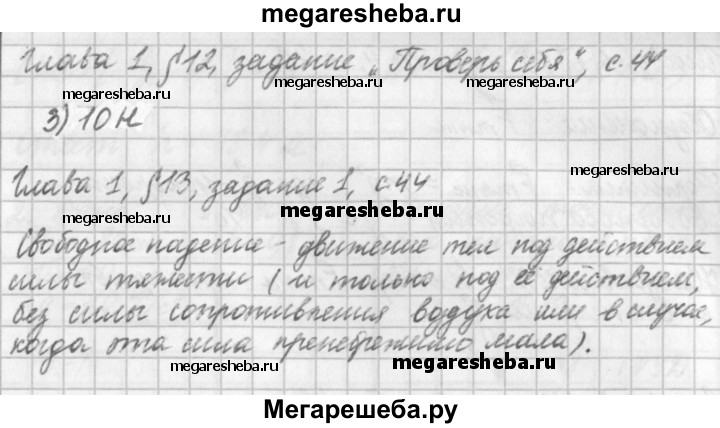 megaresheba.ru
Глава 1, §12, задание „Проверь себя“, с.44
megaresheba.ru megaresheba.ru megaresheba.ru
3) 10 Н
Глава 1, §13, задание 1, с.44
megaresheba.ru
Свободное падение - движение тел под действием
силы тяжести (и только под её действием,
без силы сопротивления воздуха или в случае,
когда эта сила пренебрежимо мала).
megaresheba.ru megaresheba.ru
Мегарешеба.ру